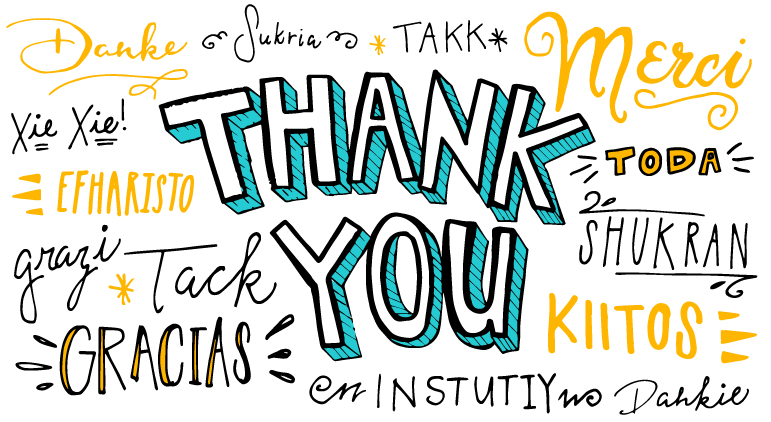 Danke
Sukria
TAKK
Merci
Xie Xie!
THANK
TODA
EFHARISTO
SHUKRAN
grazi
Tack
YOU
KIITOS
GRACIAS
INSTUTIY
Dankie